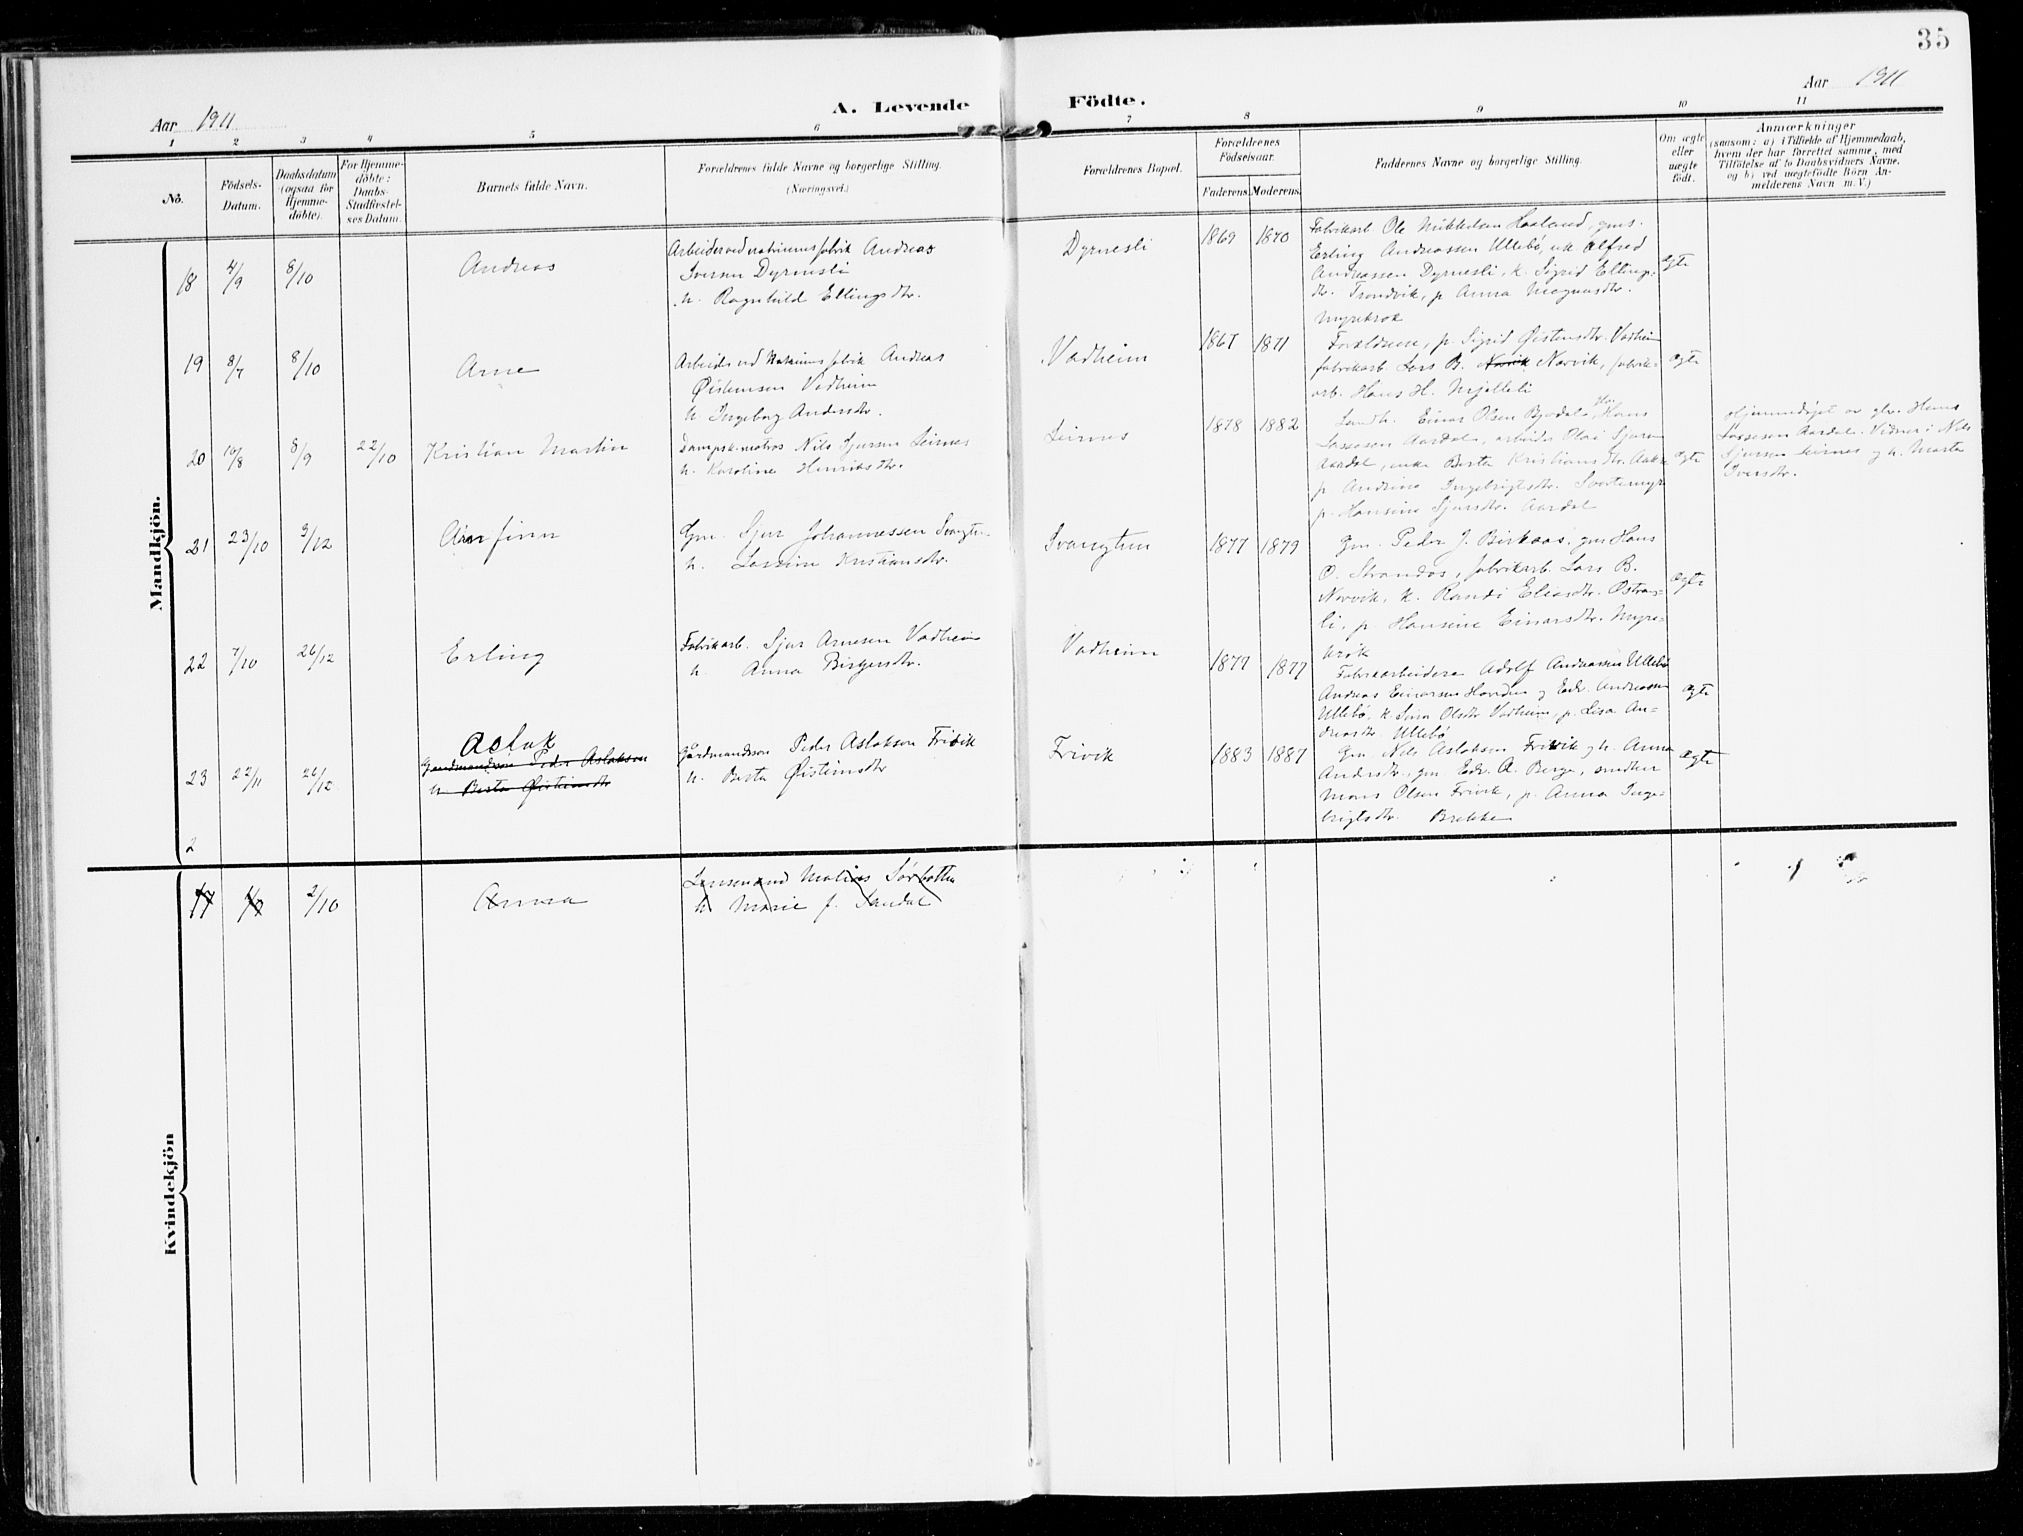 35
Aar 1911
A. Levende Födte.
Aar 1911
1 2 3 4 5 6 7 8 9 10 11
No.
Födsels-
Datum.
Daabsdatum
(ogsaa for
Hjemme-
döbte).
For Hjemme-
döbte:
Daabs-
Stadfæstel-
ses Datum.
Barnets fulde Navn.
Forældrenes fulde Navne og borgerlige Stilling.
(Næringsvei.)
Forældrenes Bopæl.
Forældrenes
Födselsaar.
Faderens. Moderens.
Faddernes Navne og borgerlige Stilling.
Om ægte
eller
uægte
födt.
Anmærkninger
(saasom: a) i Tilfælde af Hjemmedaab,
hvem der har forrettet samme, med
Tilföielse af to Daabsvidners Navne,
og b) ved uægtefödte Börn An-
melderens Navn m. V.)
Mandkjön.
18 4/9 8/10 Andreas
Arbeider ved natriumsfabrik Andreas
Iversen Dyrnesli
h. Ragnhild Ellingsdtr.
Dyrnesli 1869 1870
Fabrikarb. Ole Mikkelsen Haaland, gms.
Erling Andreassen Ullebø, uk Alfred
Andreassen Dyrnesli, k. Sigrid Ellings-
dtr. Trondvik, p. Anna Magnusdtr.
Myrekrok
ægte
19 8/7 8/10 Arne
Arbeider ved Natriumsfabrik Andreas
Øistensen Vadheim
h. Ingeborg Andersdtr.
Vadheim 1867 1871
Forældrene, p. Sigrid Øistensdtr. Vadheim
fabrikarb. Lars B. Norvik Norvik, fabrik-
arb. Hans H. Mjelleli
ægte
20 16/8 8/9 22/10 Kristian Martin
Dampsk.matros Nils Sjursen Leirnes
h. Karoline Henriksdtr.
Leirnes 1878 1882
Landh. Einar Olsen Bjordal, Hans
Lassesen Aardal, arbeider Olai Sjursen
Aardal, enke Berta Kristiansdtr.
p. Andrine Ingebrigtsdtr. Svortemyr
p. Hansine Sjursdtr. Aardal
ægte
Hjemmedøpt av glv. Hans
Lassesen Aardal. Vidner: Nils
Sjursen Leirnes og h. Marta
Iversdtr.
21 23/10 3/12 Arnfinn
Gm. Sjur Johannessen Svangtun
h. Larsine Kristiansdtr.
Svangtun 1877 1879
Gm. Peder J. Birkaas, gm Hans
O. Strandos, fabrikarb. Lars B.
Norvik, k. Randi Eliasdtr. Østrays-
li, p. Hansine Einarsdtr. Myre-
krok
ægte
22 7/10 26/12 Erling
Fabrikarb. Sjur Arnesen Vadheim
h. Anna Birgersdtr.
Vadheim 1877 1877
Fabrikarbeidere Adolf Andreassen Ullebø
Andreas Einarsen Hovden og Edv. Andreassen
Ullebø, k. Sina Olsdtr Vadheim, p. Lisa An-
dreasdtr. Ullebø
ægte
23 22/11 26/12 Aslak
Gaardmandsson Peder Aslaksen
h. Berta Øistensdtr
Gardmandsson Peder Aslaksen Frivik
h. Berta Øistensdtr
Frivik 1883 1887
Gm. Nils Aslaksen Frivik og h. Anna
Andersdtr, gm. Edv. A. Berge, smedken
Mons Olsen Frivik, p. Anna Inge-
brigtsdtr. Brekke
ægte
2
Kvindekjön
17 2/10 Anna
Lensmand Matias Sørbotten
h Marie f. Sandal